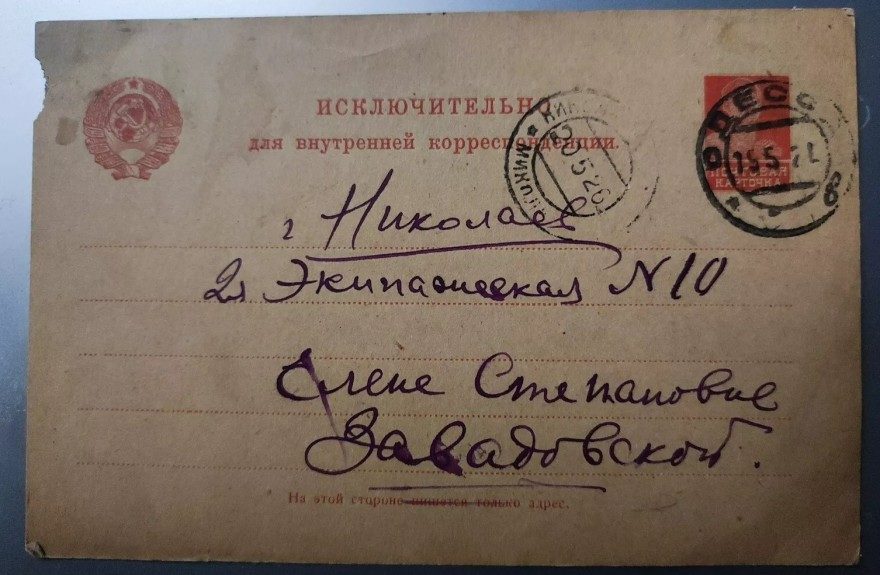 ИСКЛЮЧИТЕЛЬНО
для внутренней корреспонденции.
ОДЕССА
ПОЧТОВАЯ
КАРТОЧКА
20 5 26
г Николаев
2я Экипажеская N 10
Елене Степановне
Завадовской.
На этой стороне пишется только адрес.